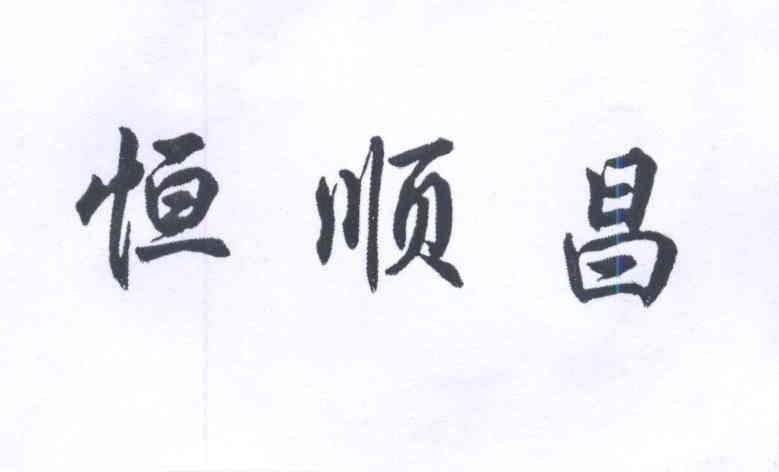 恒顺昌